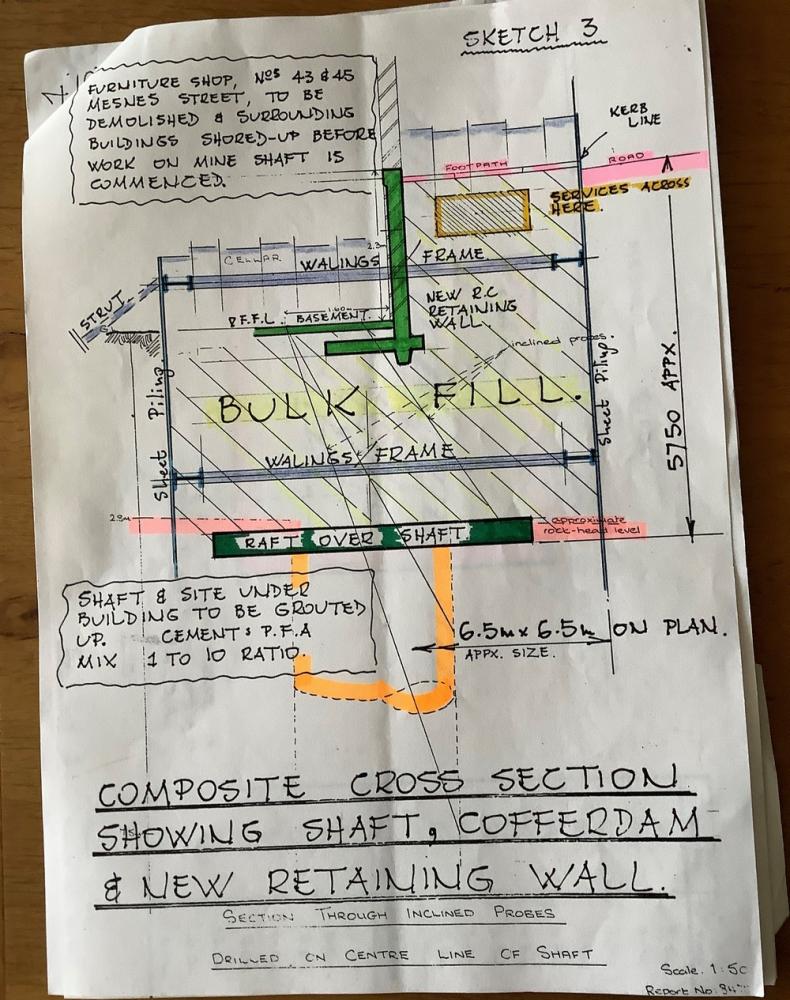 SKETCH 3
FURNITURE SHOP, Nos 43 & 45
MESNES STREET, TO BE
DEMOLISHED & SURROUNDING
BUILDINGS SHORED-UP BEFORE
WORK ON MINE SHAFT IS
COMMENCED.
KERB
LINE
FOOTPATH
ROAD
SERVICES ACROSS
HERE.
CELLAR
WALINGS FRAME
STRUT
NEW R.C
RETAINING
WALL.
F.F.L.
BASEMENT.
inclined probes
BULK FILL.
5750 APPX.
Sheet Piling.
Sheet Piling.
WALINGS FRAME
approximate
rock-head level
RAFT OVER SHAFT
SHAFT & SITE UNDER
BUILDING TO BE GROUTED
UP. CEMENT : P.F.A
MIX 1 TO 10 RATIO.
6.5m x 6.5m ON PLAN.
APPX. SIZE.
COMPOSITE CROSS SECTION
SHOWING SHAFT, COFFERDAM
& NEW RETAINING WALL.
SECTION THROUGH INCLINED PROBES
DRILLED ON CENTRE LINE OF SHAFT
Scale. 1:50
Report No.